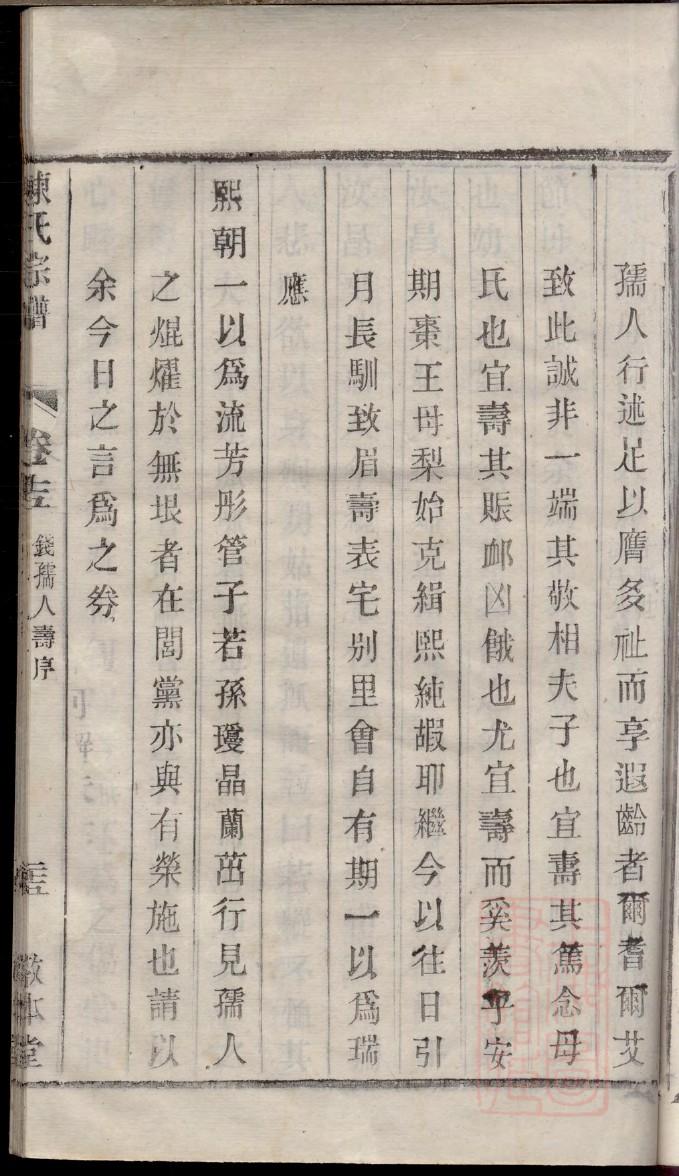 孺人行述足以膺多祉而享遐齡者爾耆爾艾
致此誠非一端其敬相夫子也宜壽其篤念母
氏也宜壽其賑卹凶餓也尤宜壽而奚羨乎安
期棗王母梨始克緝熙純嘏耶繼今以往日引
月長馴致眉壽表宅別里會自有期一以爲瑞
應
熙朝一以爲流芳彤管子若孫瓊晶蘭茁行見孺人
之焜燿於無垠者在閭黨亦與有榮施也請以
余今日之言爲之券
陳氏宗譜
卷 錢孺人壽序
敬本堂